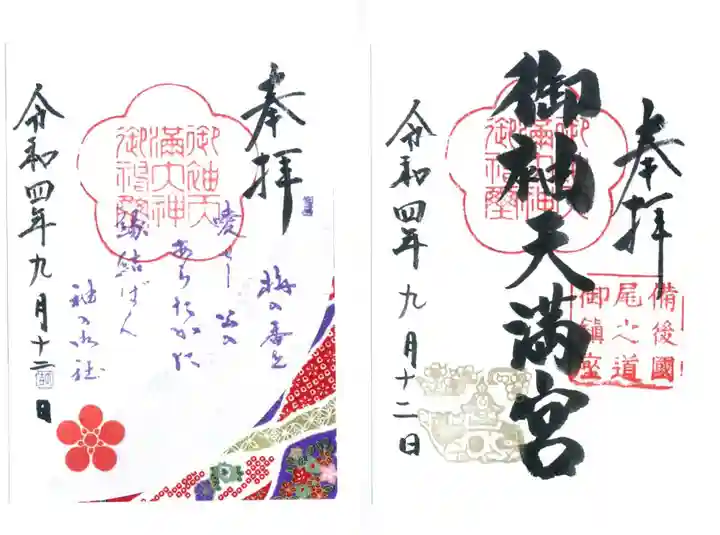 奉拝
梅の香を
愛せし公の
あらたかに
縁結ばん
袖の御社
御袖天
満大神
御神璽
令和四年九月十二日
奉拝
備後國
尾之道
御鎮座
御袖天満宮
令和四年九月十二日